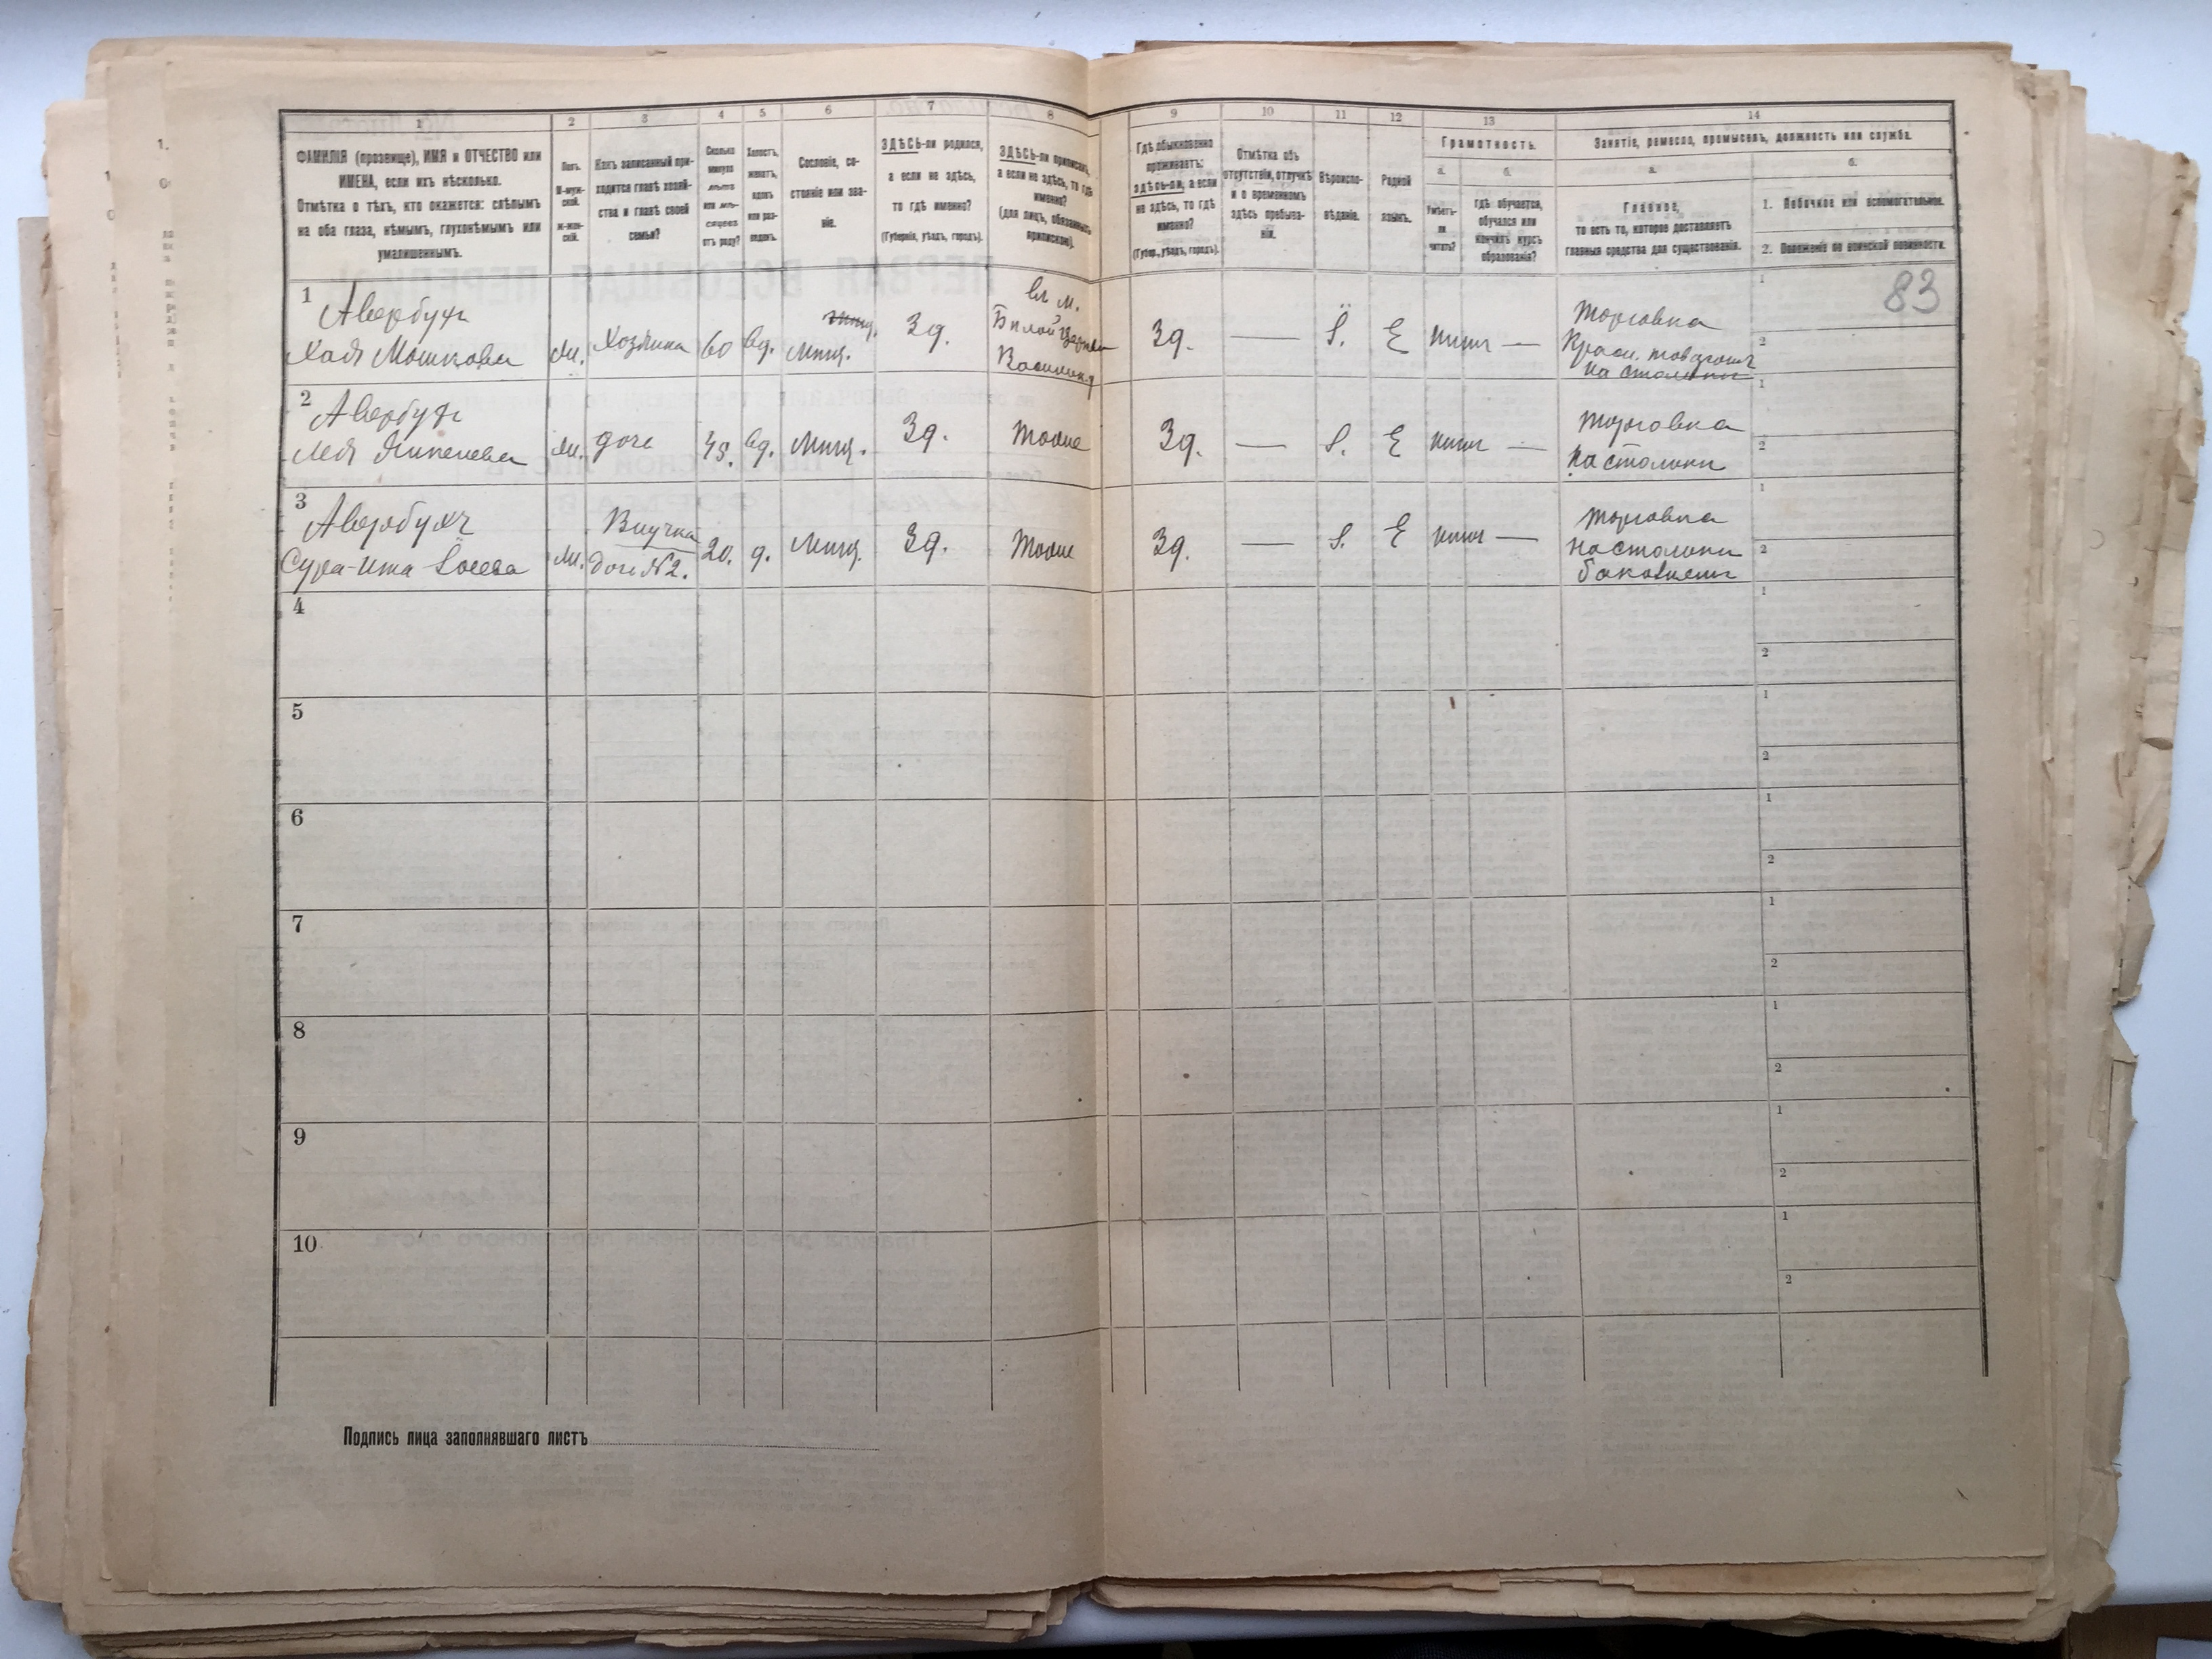 1 2 3 4 5 6 7 8 9 10 11 12 13 14
ФАМИЛІЯ (прозвище), ИМЯ и ОТЧЕСТВО или
ИМЕНА, если ихъ нѣсколько.
Отмѣтка о тѣхъ, кто окажется: слѣпымъ
на оба глаза, нѣмымъ, глухонѣмымъ или
умалишеннымъ.
Полъ.
М-муж-
ской.
Ж-жен-
скій.
Какъ записанный при-
ходится главѣ хозяй-
ства и главѣ своей
семьи?
Сколько
минуло
лѣтъ
или мѣ-
сяцевъ
отъ роду?
Холостъ,
женатъ,
вдовъ
или раз-
веденъ.
Сословіе, со-
стояніе или зва-
ніе.
ЗДѢСЬ-ли родился,
а если не здѣсь,
то гдѣ именно?
(Губернія, уѣздъ, городъ).
ЗДѢСЬ-ли приписанъ,
а если не здѣсь, то гдѣ
именно?
(для лицъ, обязанныхъ
припискою).
Гдѣ обыкновенно
проживаетъ:
здѣсь-ли, а если
не здѣсь, то гдѣ
именно?
(Губер., уѣздъ, городъ).
Отмѣтка объ
отсутствіи, отлучкѣ
и о временномъ
здѣсь пребыва-
ніи.
Вѣроиспо-
вѣданіе.
Родной
языкъ.
Грамотность.
а. б.
Умѣетъ-
ли
читать?
гдѣ обучается,
обучался или
кончилъ курсъ
образованія?
Занятіе, ремесло, промыселъ, должность или служба.
а. б.
Главное,
то есть то, которое доставляетъ
главныя средства для существованія.
1. Побочное или вспомогательное.
2. Положеніе по воинской повинности.
83
1 Авербухъ
Хая Мошкова
Хозяйка
60
вд.
мѣщ.
Зд.
въ м.
Бѣлой Церкви
Зд.
—
Е
нѣтъ —
Торговка
Красн. товаромъ
на столикѣ
1
2
2 Авербухъ
Лея
дочь
45.
вд.
мѣщ.
Зд.
Тоже
Зд.
—
Е
нѣтъ —
Торговка
на столикѣ
1
2
3 Авербухъ
Сура-Ита
Внучка
дочь №2.
20.
д.
мѣщ.
Зд.
Тоже
Зд.
—
Е
нѣтъ —
Торговка
на столикѣ
1
2
4
1
2
5
1
2
6
1
2
7
1
2
8
1
2
9
1
2
10
1
2
Подпись лица заполнявшаго листъ